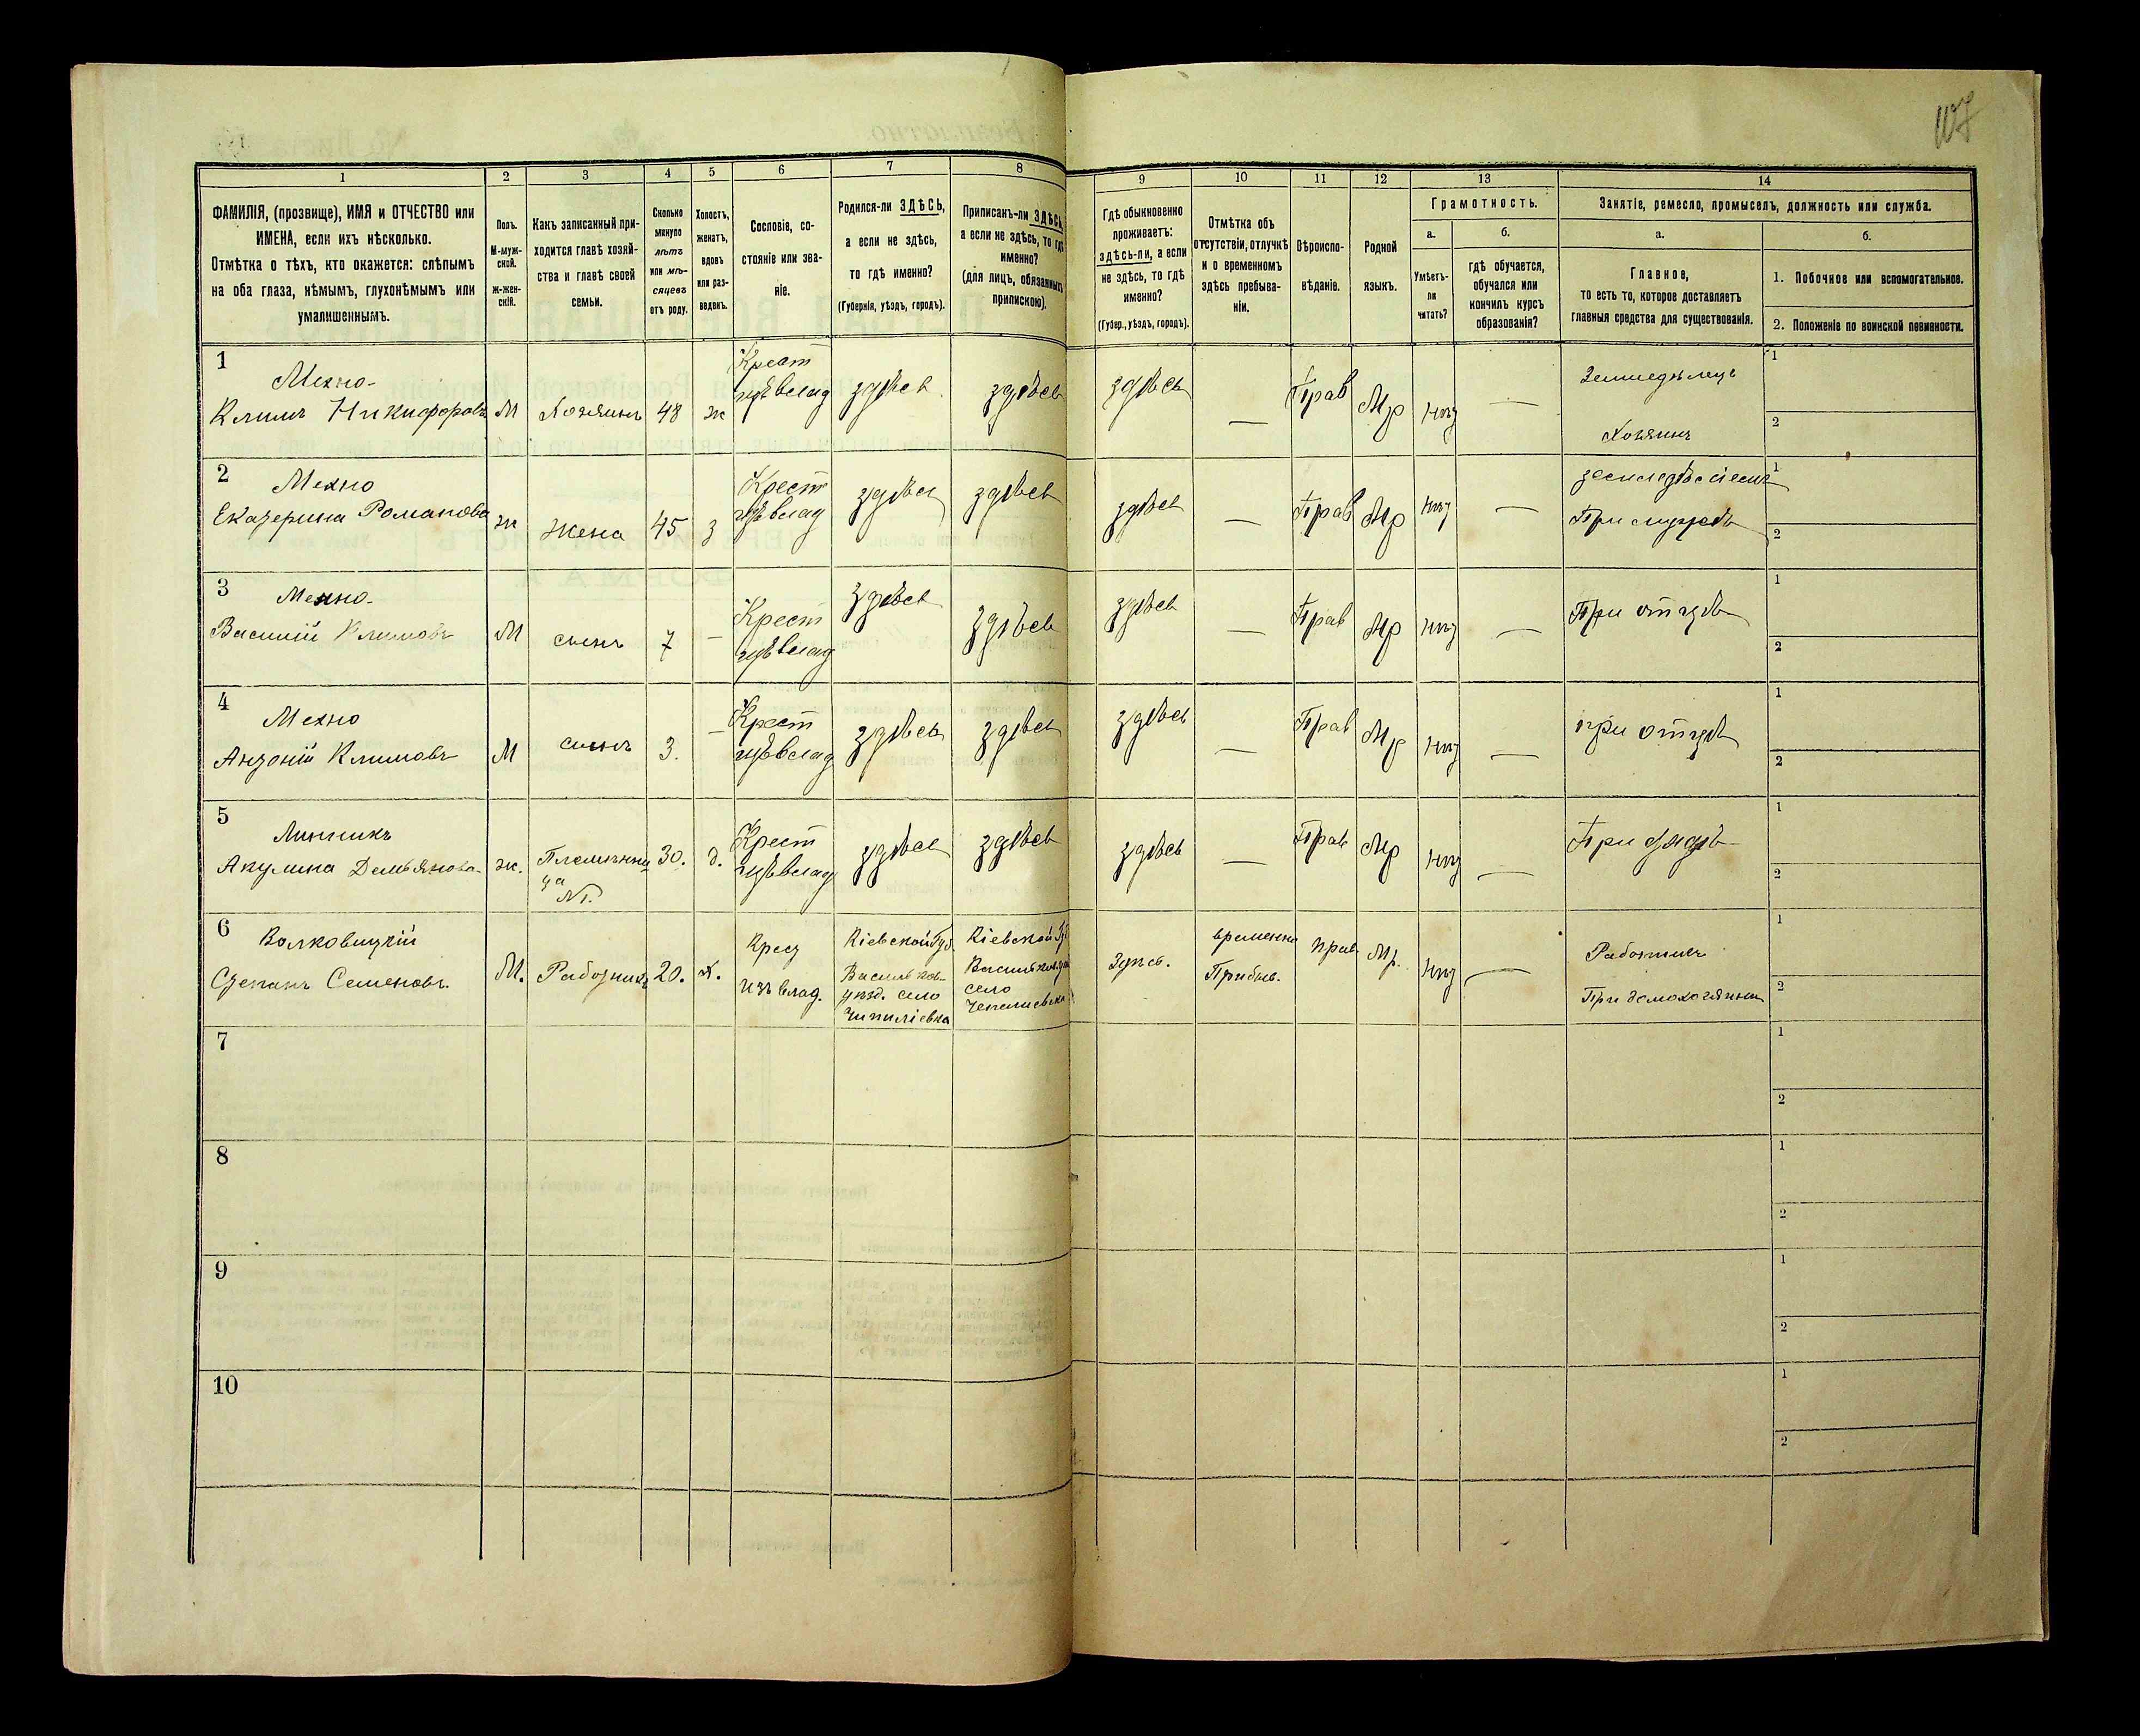 107
1
2
3
4
5
6
7
8
9
10
11
12
13
14
ФАМИЛІЯ, (прозвище), ИМЯ и ОТЧЕСТВО или
ИМЕНА, если ихъ нѣсколько.
Отмѣтка о тѣхъ, кто окажется: слѣпымъ
на оба глаза, нѣмымъ, глухонѣмымъ или
умалишеннымъ.
Полъ.
М-муж-
ской.
Ж-жен-
скій.
Какъ записанный при-
ходится главѣ хозяй-
ства и главѣ своей
семьи.
Сколько
минуло
лѣтъ
или мѣ-
сяцевъ
отъ роду.
Холостъ,
женатъ,
вдовъ
или раз-
веденъ.
Сословіе, со-
стояніе или зва-
ніе.
Родился-ли ЗДѢСЬ,
а если не здѣсь,
то гдѣ именно?
(Губернія, уѣздъ, городъ).
Приписанъ-ли ЗДѢСЬ,
а если не здѣсь, то гдѣ
именно?
(для лицъ, обязанныхъ
припискою).
Гдѣ обыкновенно
проживаетъ:
здѣсь-ли, а если
не здѣсь, то гдѣ
именно?
(Губер., уѣздъ, городъ).
Отмѣтка объ
отсутствіи, отлучкѣ
и о временномъ
здѣсь пребыва-
ніи.
Вѣроиспо-
вѣданіе.
Родной
языкъ.
Грамотность.
а.
Умѣетъ-
ли
читать?
б.
гдѣ обучается,
обучался или
кончилъ курсъ
образованія?
Занятіе, ремесло, промыселъ, должность или служба.
а.
Главное,
то есть то, которое доставляетъ
главныя средства для существованія.
б.
1. Побочное или вспомогательное.
2. Положеніе по воинской повинности.
1
Мехно-
Климъ Никифоровъ
М
Хозяинъ
48
ж
Крест
изъ влад
здѣсь
здѣсь
здѣсь
—
Прав
Мр
нѣт
—
Земледѣлецъ
Хозяинъ
1
2
2
Мехно
Екатерина Романова
ж
жена
45
з
Крест
изъ влад
здѣсь
здѣсь
здѣсь
—
Прав
Мр
нѣт
—
При мужѣ
1
2
3
Мехно-
Василій Климовъ
М
сынъ
7
—
Крест
изъ влад
здѣсь
здѣсь
здѣсь
—
Прав
Мр
нѣт
—
При отцѣ
1
2
4
Мехно
Антоній Климовъ
М
сынъ
3.
—
Крест
изъ влад
здѣсь
здѣсь
здѣсь
—
Прав
Мр
нѣт
—
при отцѣ
1
2
5
Линникъ
Акулина Демьянова-
ж.
Племянни
ца
№1.
30.
д.
Крест
изъ влад
здѣсь
здѣсь
здѣсь
—
Прав
Мр
нѣт
—
При дядѣ
1
2
6
Волковицкій
Степанъ Семеновъ.
М.
Работникъ
20.
х.
Крест
изъ влад.
Кіевской Губ.
Васильков-
уѣзд. село
Чипиліевка
Кіевской Губ
Васильков. уѣз
село
Чепелиевка
Здѣсь.
временно
Прибыв.
прав
Мр.
нѣт
—
Работникъ
При домохозяинѣ
1
2
7
1
2
8
1
2
9
1
2
10
1
2